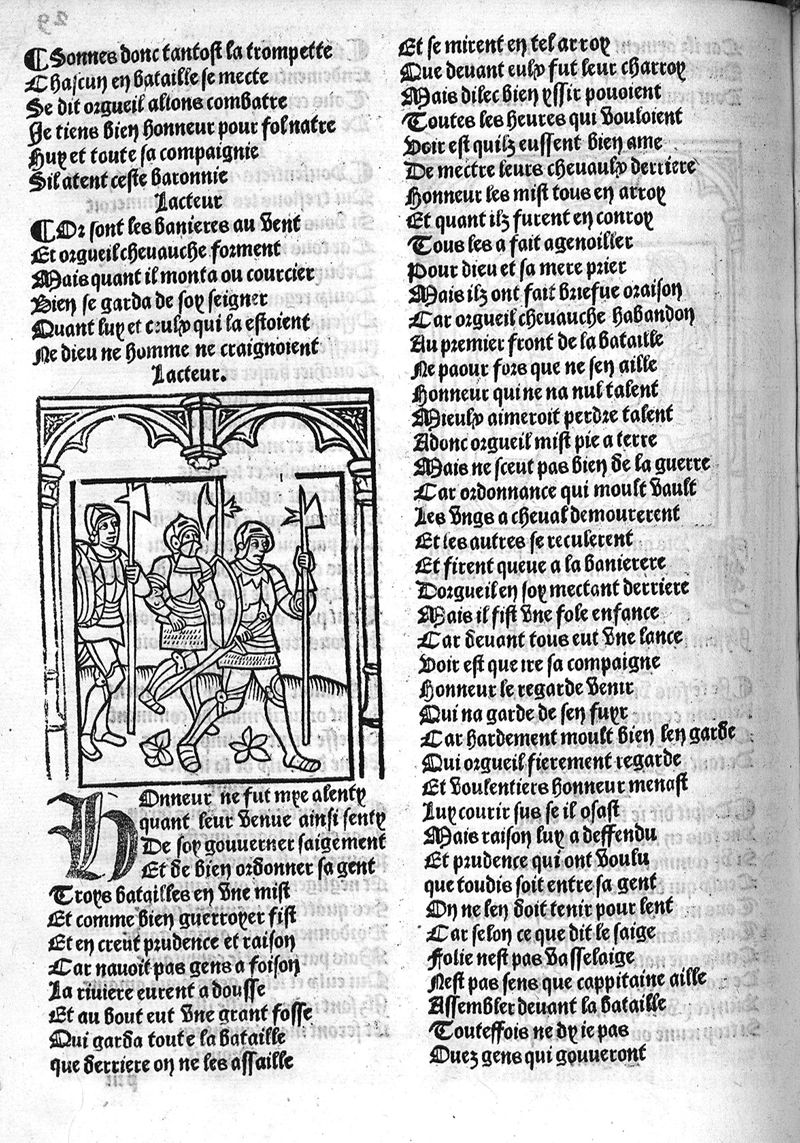 29
¶ Sonnes donc tantost la trompette
Chascun en bataille se mecte
Se dit orgueil allons combatre
Je tiens bien honneur pour folnatre
Huy et toute sa compaignie
Sil atent ceste baronnie
Lacteur
¶ Or sont les banieres au vent
Et orgueil chevauche forment
Mais quant il monta ou courcier
Bien se garda de soy seigner
Quant luy et ceulx qui la estoient
Ne dieu ne homme ne craignoient
Lacteur.
Honneur ne fut mye alenty
quant leur venue ainsi senty
De soy gouverner saigement
Et de bien ordonner sa gent
Troys batailles en une mist
Et comme bien guerroyer fist
Et en creut prudence et raison
Car navoit pas gens a foison
La riviere eurent a dousse
Et au bout eut une grant fosse
Qui garda toute la bataille
que derriere on ne les assaille
Et se mirent en tel arroy
Que devant eulx fut leur charroy
Mais dilec bien yssir pouoient
Toutes les heures qui vouloient
Voir est quilz eussent bien ame
De mectre leurs chevaulx derriere
Honneur les mist tous en arroy
Et quant ilz furent en conroy
Tous les a fait agenoiller
Pour dieu et sa mere prier
Mais ilz ont fait briefue oraison
Car orgueil chevauche habandon
Au premier front de la bataille
Ne paour fors que ne sen aille
Honneur qui ne na nul talent
Mieulx aimeroit perdre talent
Adonc orgueil mist pie a terre
Mais ne sceut pas bien de la guerre
Car ordonnance qui moult vault
Les ungs a cheval demourerent
Et les autres se reculerent
Et firent queue a la banierere
Dorgueil en soy mectant derriere
Mais il fist une fole enfance
Car devant tous eut une lance
Voir est que ire sa compaigne
Honneur le regarde venir
Qui na garde de sen fuyr
Car hardement moult bien len garde
Qui orgueil fierement regarde
Et voulentiers honneur menast
Luy courir sus se il osast
Mais raison luy a deffendu
Et prudence qui ont voulu
que toudis soit entre sa gent
On ne len doit tenir pour lent
Car selon ce que dit le saige
Folie nest pas vasselaige
Nest pas sens que cappitaine aille
Assembler devant la bataille
Touteffois ne dy ie pas
Ouez gens qui gouveront